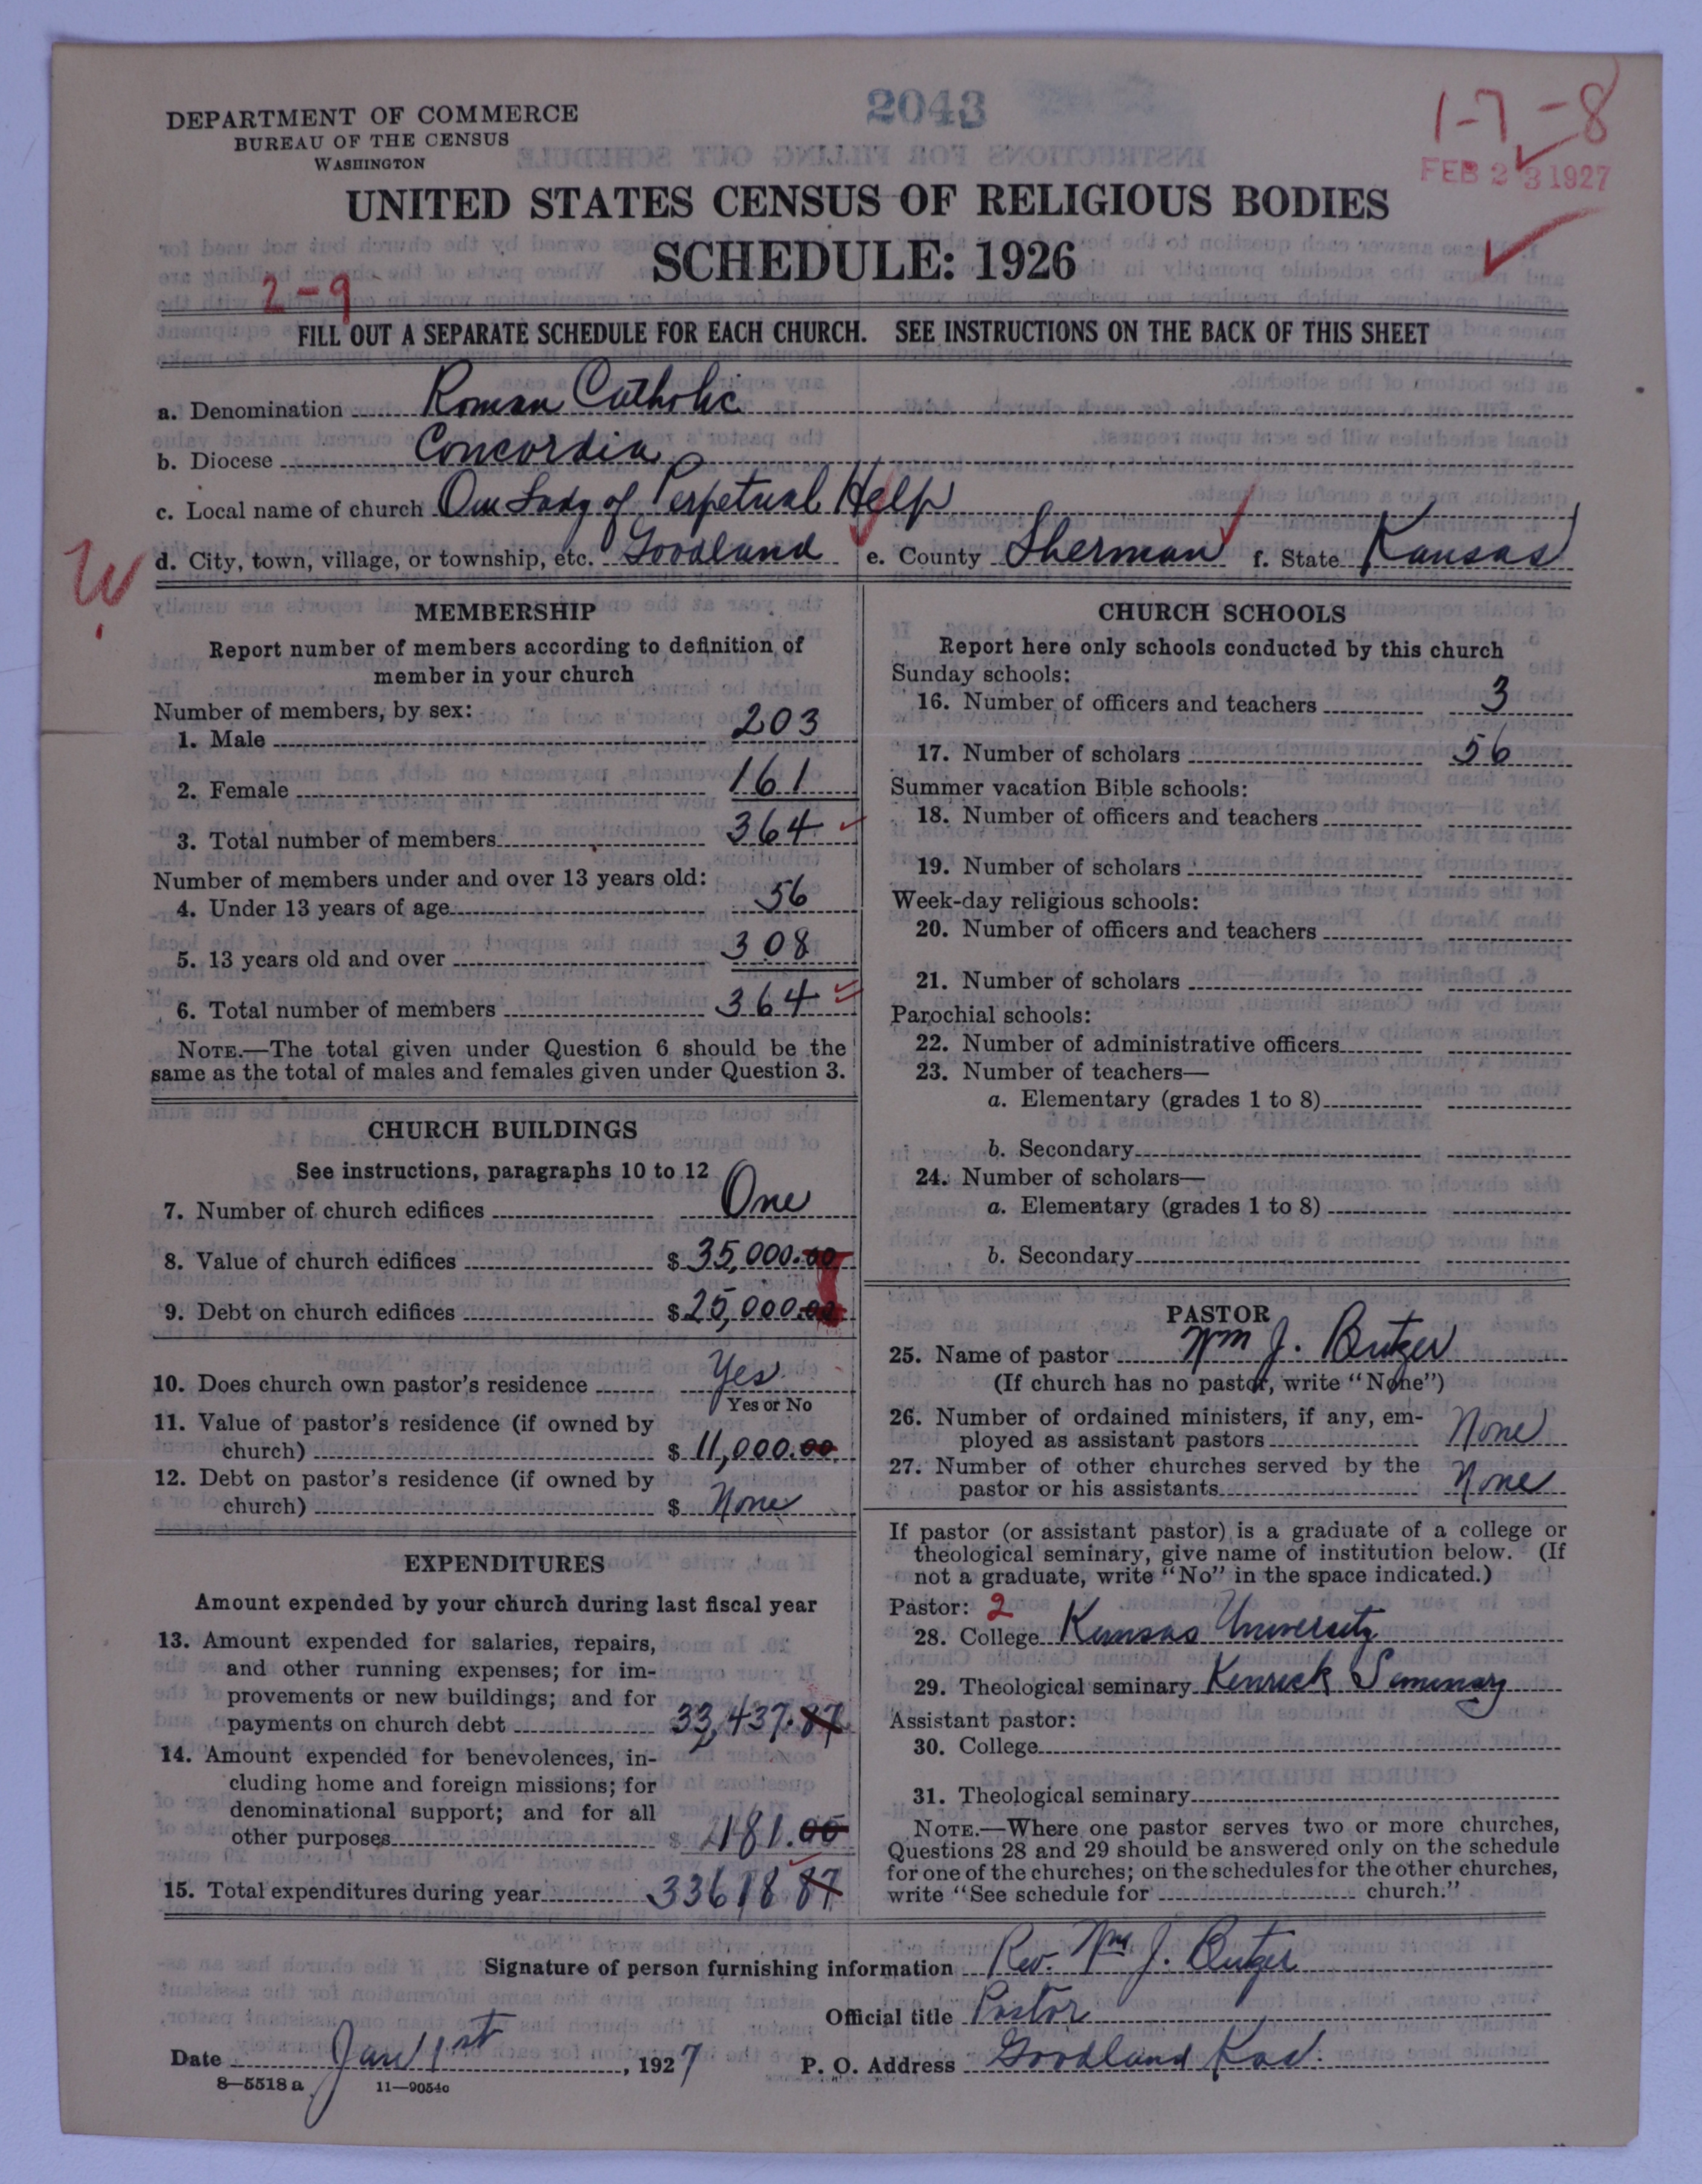 2043
1-7-8
DEPARTMENT OF COMMERCE
BUREAU OF THE CENSUS
WASHINGTON
FEB 23 1927
UNITED STATES CENSUS OF RELIGIOUS BODIES
SCHEDULE: 1926
2-9
FILL OUT A SEPARATE SCHEDULE FOR EACH CHURCH. SEE INSTRUCTIONS ON THE BACK OF THIS SHEET
a. Denomination Roman Catholic
b. Diocese Concordia
c. Local name of church Our Lady of Perpetual Help
d. City, town, village, or township, etc. Goodland e. County Sherman f. State Kansas
W
MEMBERSHIP
Report number of members according to definition of
member in your church
Number of members, by sex:
1. Male 203
2. Female 161
3. Total number of members 364
Number of members under and over 13 years old:
4. Under 13 years of age 56
5. 13 years old and over 308
6. Total number of members 364
NOTE.—The total given under Question 6 should be the
same as the total of males and females given under Question 3.
CHURCH BUILDINGS
See instructions, paragraphs 10 to 12
7. Number of church edifices One
8. Value of church edifices $ 35,000.00
9. Debt on church edifices $ 25,000.00
10. Does church own pastor's residence Yes
Yes or No
11. Value of pastor's residence (if owned by
church) $ 11,000.00
12. Debt on pastor's residence (if owned by
church) $ None
EXPENDITURES
Amount expended by your church during last fiscal year
13. Amount expended for salaries, repairs,
and other running expenses; for im-
provements or new buildings; and for
payments on church debt 33,437.87
14. Amount expended for benevolences, in-
cluding home and foreign missions; for
denominational support; and for all
other purposes $ 181.00
15. Total expenditures during year 33618 87
CHURCH SCHOOLS
Report here only schools conducted by this church
Sunday schools:
16. Number of officers and teachers 3
17. Number of scholars 56
Summer vacation Bible schools:
18. Number of officers and teachers
19. Number of scholars
Week-day religious schools:
20. Number of officers and teachers
21. Number of scholars
Parochial schools:
22. Number of administrative officers
23. Number of teachers—
a. Elementary (grades 1 to 8)
b. Secondary
24. Number of scholars—
a. Elementary (grades 1 to 8)
b. Secondary
PASTOR
25. Name of pastor Wm J. Butzer
(If church has no pastor, write "None")
26. Number of ordained ministers, if any, em-
ployed as assistant pastors None
27. Number of other churches served by the
pastor or his assistants None
If pastor (or assistant pastor) is a graduate of a college or
theological seminary, give name of institution below. (If
not a graduate, write "No" in the space indicated.)
Pastor: 2
28. College Kansas University
29. Theological seminary Kenrick Seminary
Assistant pastor:
30. College
31. Theological seminary
NOTE.—Where one pastor serves two or more churches,
Questions 28 and 29 should be answered only on the schedule
for one of the churches; on the schedules for the other churches,
write "See schedule for church."
Signature of person furnishing information Rev. Wm J. Butzer
Official title Pastor
Date Jan 1st, 1927 P. O. Address Goodland Kas.
8—5518 a 11—9054c